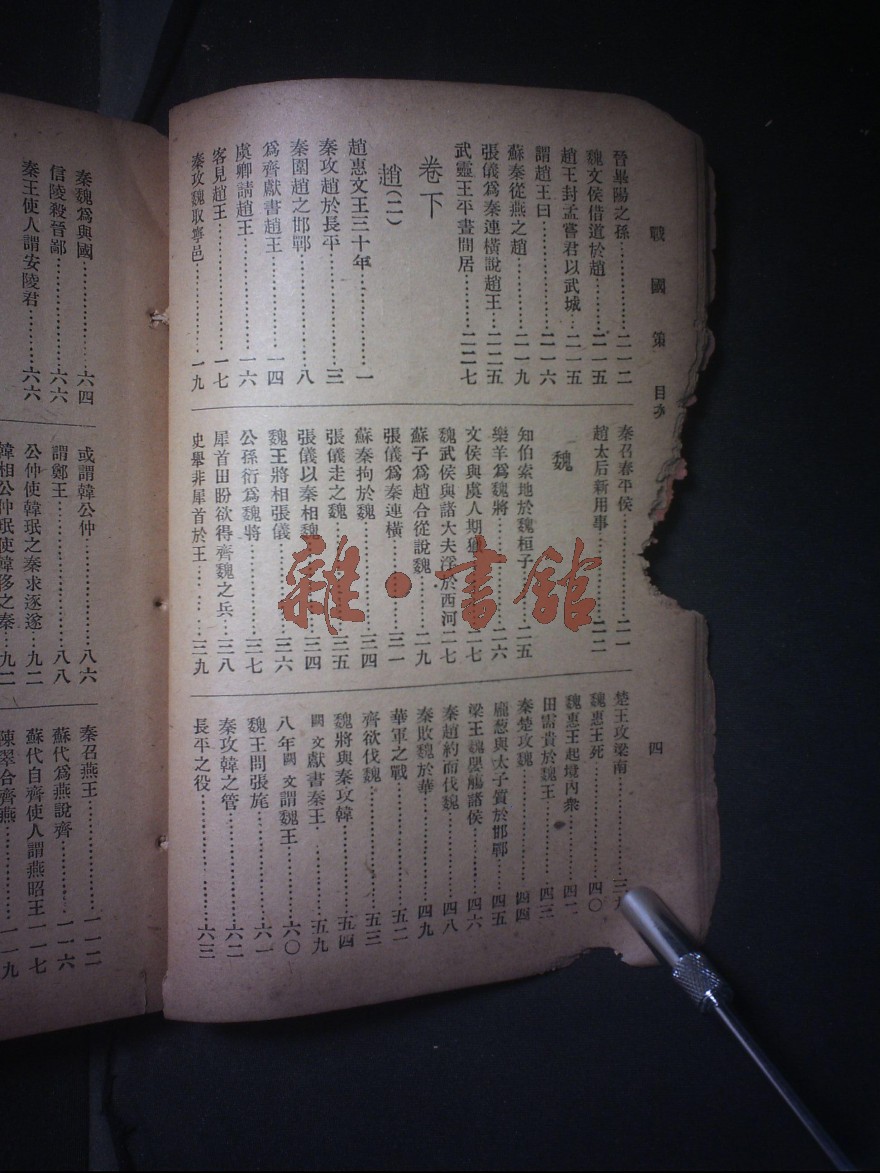 戰國策 目次 四
晉畢陽之孫…………二一二
魏文侯借道於趙……二一五
趙王封孟嘗君以武城…二一五
謂趙王曰……………二一六
蘇秦從燕之趙………二一九
張儀爲秦連橫說趙王…二二五
武靈王平晝閒居……二二七
卷下
趙(二)
趙惠文王三十年……一
秦攻趙於長平………三
秦圍趙之邯鄲………八
爲齊獻書趙王………一四
虞卿請趙王…………一六
客見趙王……………一七
秦攻魏取寧邑………一九
秦召春平侯…………二一
趙太后新用事………二二
魏
知伯索地於魏桓子…二五
樂羊爲魏將…………二六
文侯與虞人期獵……二七
魏武侯與諸大夫浮於西河…二七
蘇子爲趙合從說魏…二九
張儀爲秦連橫………三一
蘇秦拘於魏…………三四
張儀走之魏…………三五
張儀以秦相魏………三四
魏王將相張儀………三六
公孫衍爲魏將………三七
犀首田盼欲得齊魏之兵…三八
史舉非犀首於王……三九
楚王攻梁南…………三九
魏惠王死……………四〇
魏惠王起境內衆……四二
田需貴於魏王………四三
秦楚攻魏……………四四
龐葱與太子質於邯鄲…四五
梁王魏嬰觴諸侯……四六
秦趙約而伐魏………四八
秦敗魏於華…………四九
華軍之戰……………五二
齊欲伐魏……………五三
魏將與秦攻韓………五四
闕文獻書秦王………五九
八年闕文謂魏王……六〇
魏王問張旄…………六一
秦攻韓之管…………六二
長平之役……………六三
秦魏爲與國…………六四
信陵殺晉鄙…………六六
秦王使人謂安陵君…六六
或謂韓公仲…………八六
謂鄭王………………八八
公仲使韓珉之秦求逐途…九二
韓相公仲珉使韓侈之秦…九二
秦召燕王……………一一二
蘇代爲燕說齊………一一六
蘇代自齊使人謂燕昭王…一一七
陳翠合齊燕…………一一九
雜·書館